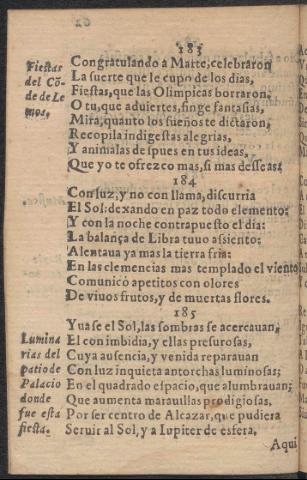 183
Fiestas del Cõde de Lemos,
Congratulando à Marte, celebraron
La suerte que le cupo de los dias,
Fiestas, que las Olimpicas borraron,
O tu, que aduiertes, finge fantasias,
Mira, quanto los sueños te dictaron,
Recopila indigestas alegrias,
Y animalas despues en tus ideas,
Que yo te ofrezco mas, si mas desseas.
184
Con luz, y no con llama, discurria
El Sol: dexando en paz todo elemento:
Y con la noche contrapuesto el dia:
La balança de Libra tuuo assiento:
Alentaua ya mas la tierra fria:
En las clemencias mas templado el viento
Comunicò apetitos con olores
De viuos frutos, y de muertas flores.
185
Luminarias del patio de Palacio donde fue esta fiesta.
Yuase el Sol, las sombras se acercauan,
El con imbidia, y ellas presurosas,
Cuya ausencia, y venida reparauan
Con luz inquieta antorchas luminosas;
En el quadrado espacio, que alumbrauan;
Que aumenta marauillas prodigiosas,
Por ser centro de Alcazar, que pudiera
Seruir al Sol, y a Iupiter de esfera,
Aqui